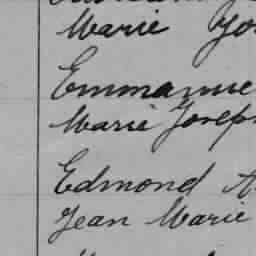 Marie
Emmanue
Marie Joseph
Edmond A
Jean Marie